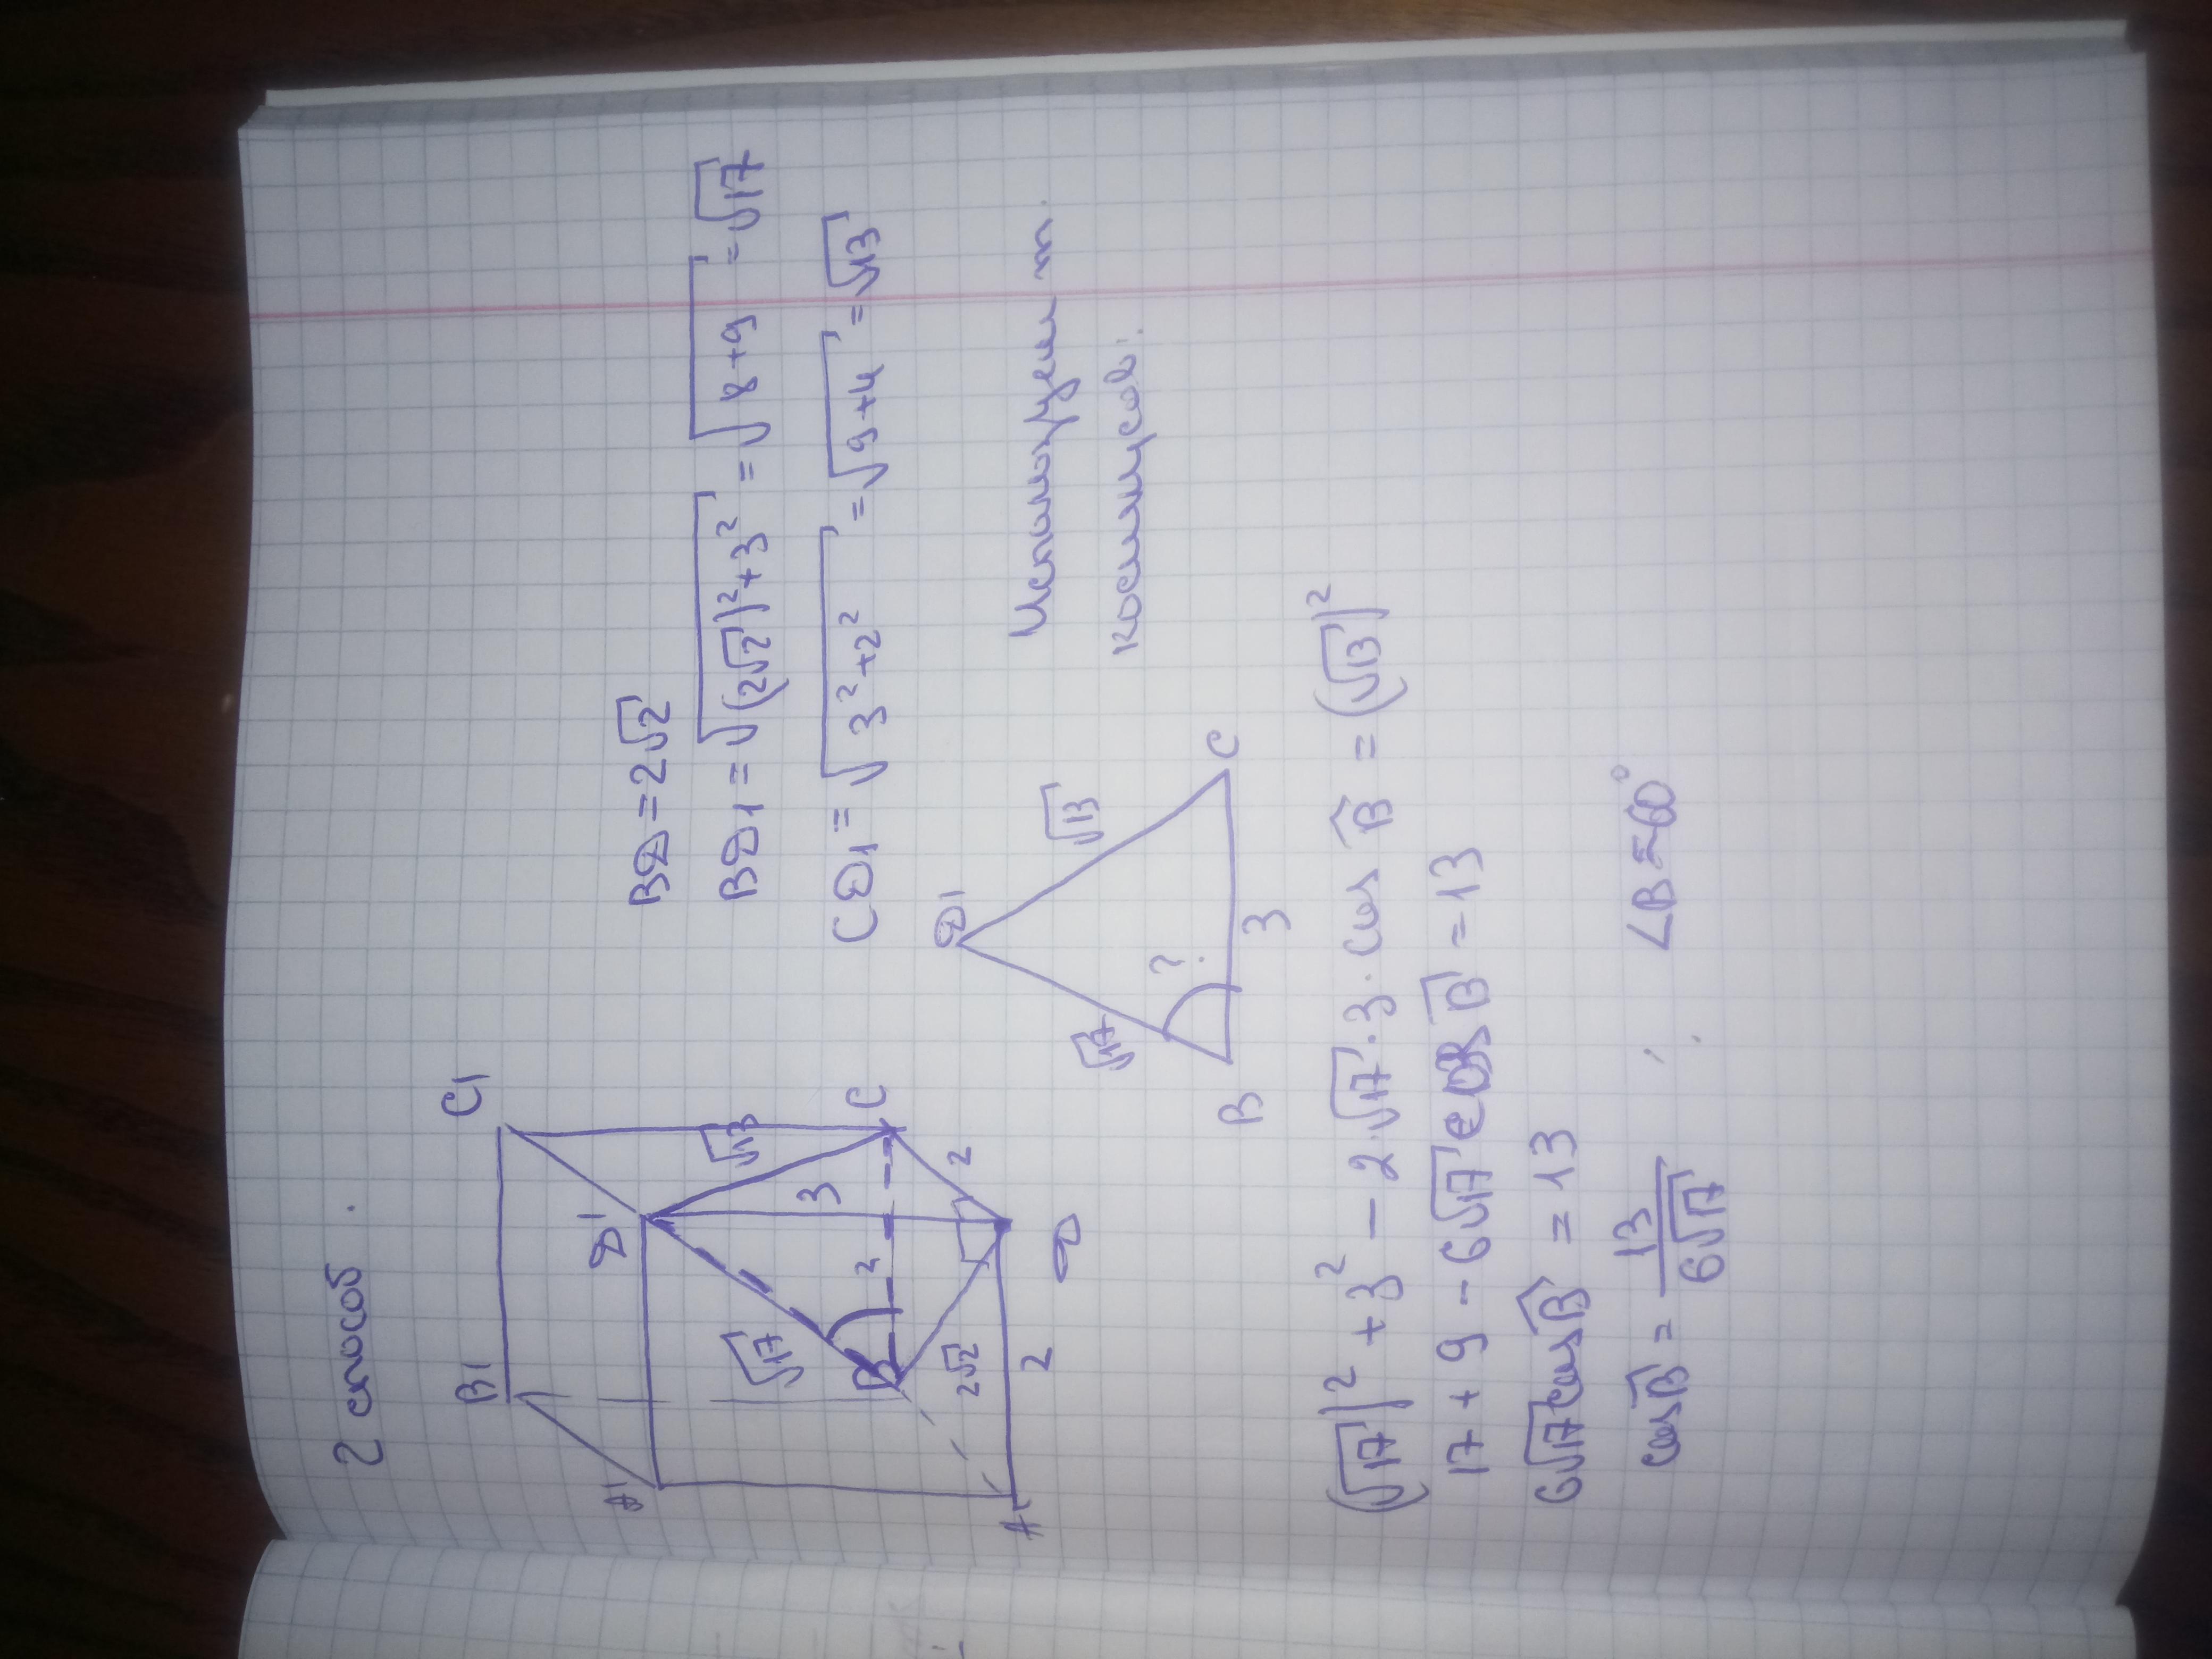 2 способ.
B1
C1
A1
D1
√17
√13
3
B
2
C
2√2
2
A
2
D
BD=2√2
BD1=√((2√2)²+3²)=√(8+9)=√17
CD1=√(3²+2²)=√(9+4)=√13
D1
√17
?
√13
B
3
C
Используем т.
косинусов.
(√17)²+3²-2·√17·3·cos B̂=(√13)²
17+9-6√17 cos B̂=13
6√17 cos B̂=13
cos B̂=13/(6√17) ; ∠B≈60°